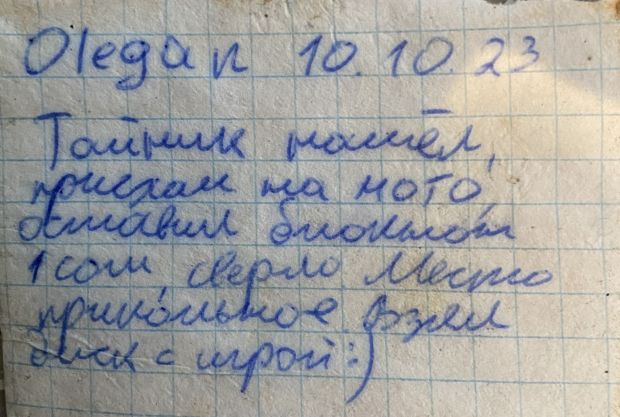 Olegan 10.10.23
Тайник нашёл,
приехал на мото,
оставил блокнот
1 сом, сверло. Место
прикольное. Взял
диск с игрой :)